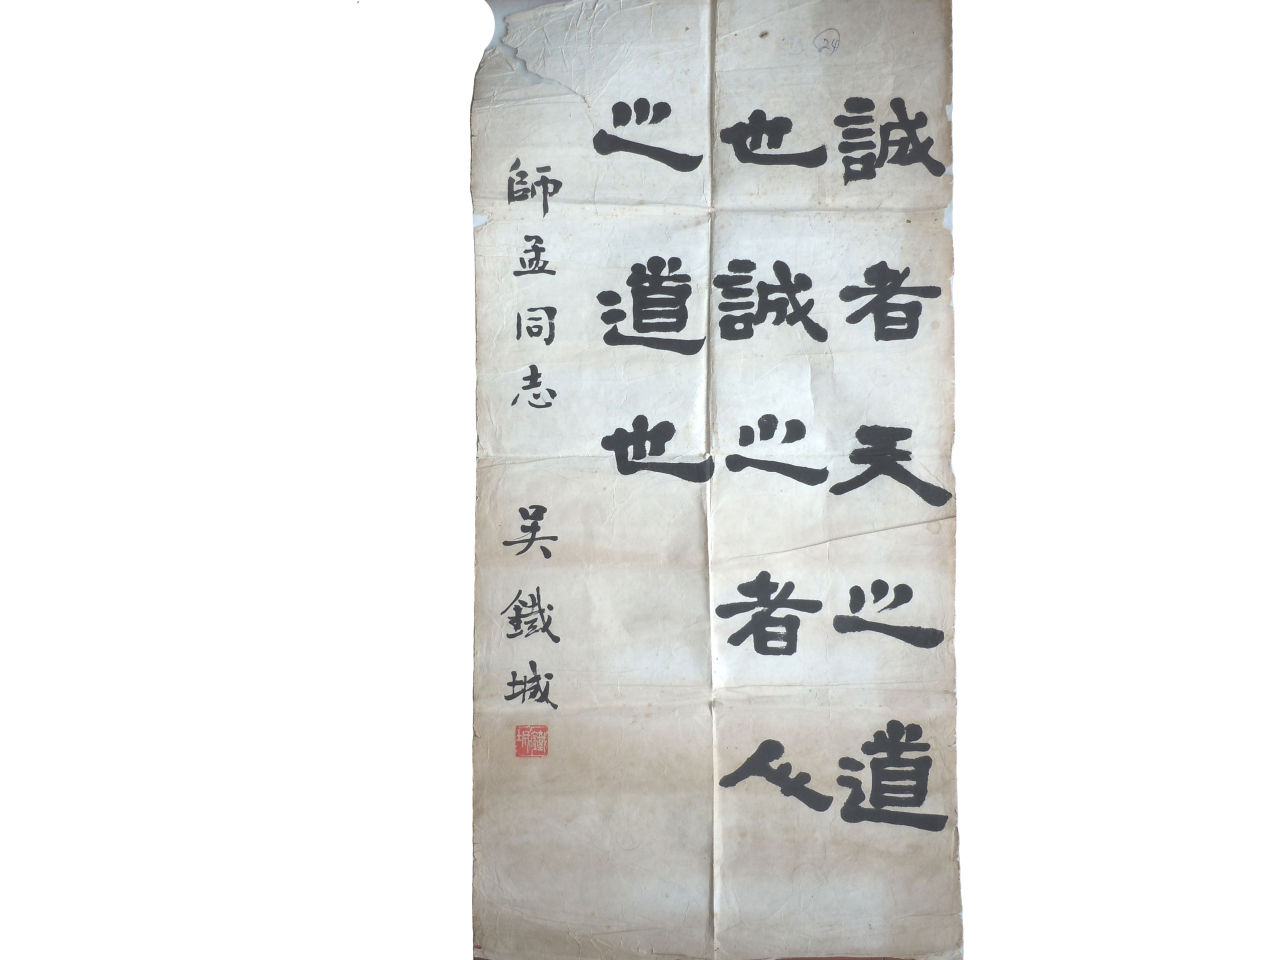 誠者天之道
也誠之者人
之道也
師孟同志
吴鐵城
鐵城
24